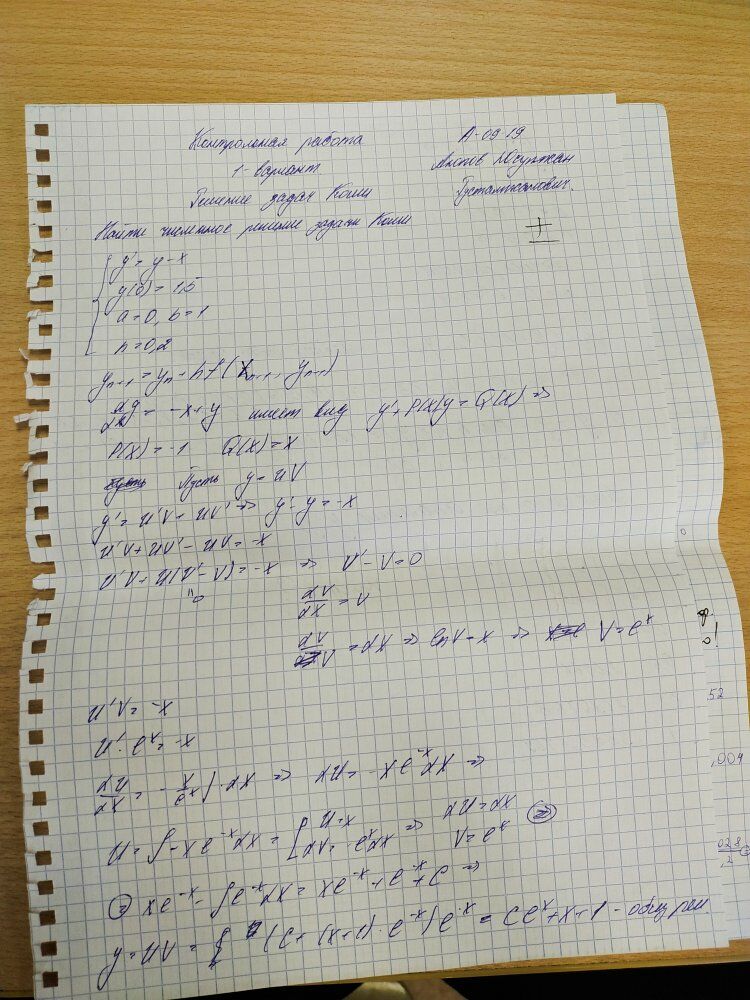 Контрольная работа А-09-19
1-вариант
Решение задач Коши
Найти численное решение задачи Коши
±
{ y' = y - x
y(0) = 1,5
a = 0, b = 1
h = 0,2
y_{n+1} = y_n + h f(x_{n+1}, y_{n+1})
dy/dx = -x + y имеет вид y' + P(x)y = Q(x) =>
P(x) = -1 Q(x) = x
Пусть y = uV
y' = u'V + uV' => y' - y = -x
u'V + uV' - uV = -x
u'V + u(V' - V) = -x => V' - V = 0
"0
dV/dx = V
dV/V = dx => lnV = x => V = e^x
u'V = -x
u' · e^x = -x
du/dx = -x/e^x | · dx => du = -x e^{-x} dx =>
u = ∫ -x e^{-x} dx = [ u = x => du = dx
dV = -e^{-x} dx V = e^{-x}
x e^{-x} - ∫ e^{-x} dx = x e^{-x} + e^{-x} + C =>
y = uV = (C + (x+1) · e^{-x}) e^x = C e^x + x + 1 - общ реш.
52
,004
028